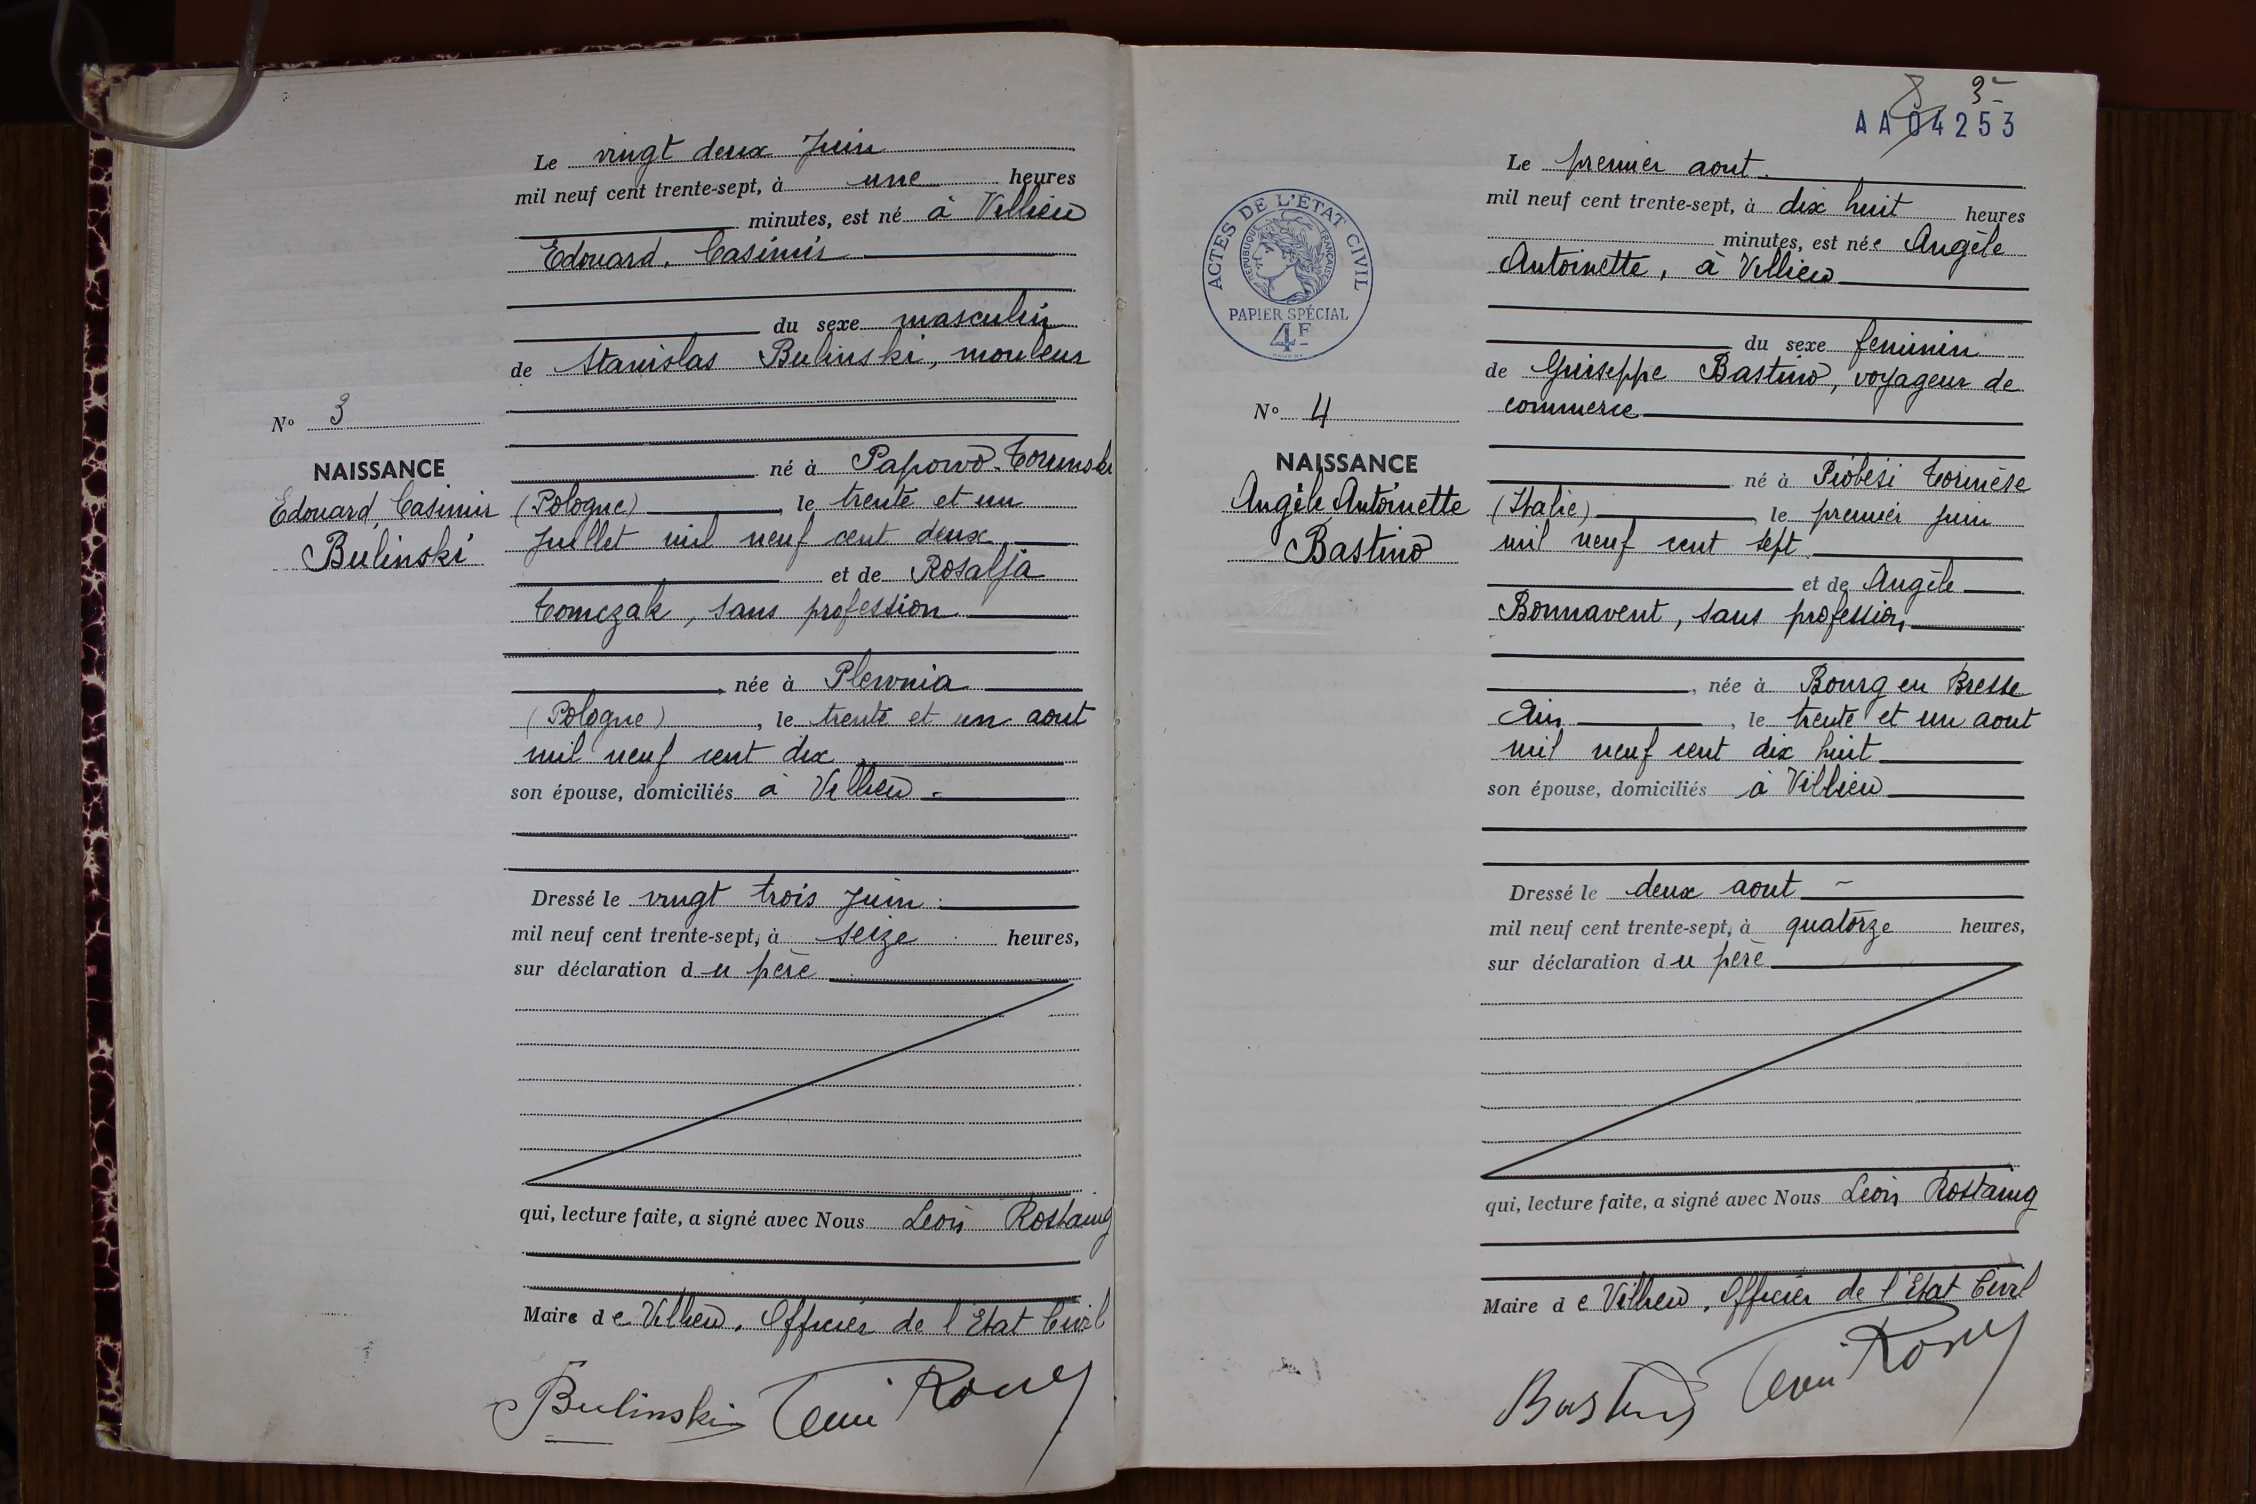 Le vingt deux Juin
mil neuf cent trente-sept, à une heures
minutes, est né à Villieu
Edouard, Casimir
du sexe masculin
de Stanislas Bulinski, mouleur
né à Papowo-Torunski
(Pologne), le trente et un
Juillet mil neuf cent deux
et de Rosalja
Tomczak, sans profession
, née à Plewnia
(Pologne), le trente et un aout
mil neuf cent dix
son épouse, domiciliés à Villieu
Dressé le vingt trois Juin
mil neuf cent trente-sept, à seize heures,
sur déclaration du père
qui, lecture faite, a signé avec Nous Léon Rostaing
Maire de Villieu, Officier de l'Etat Civil
Bulinski
No 3
NAISSANCE
Edouard, Casimir
Bulinski
3
AA04253
Le premier aout
mil neuf cent trente-sept, à dix huit heures
minutes, est née Angèle
Antoinette, à Villieu
du sexe feminin
de Guiseppe Bastino, voyageur de
commerce
né à Piobesi Torinèse
(Italie), le premier juin
mil neuf cent sept
et de Angèle
Bonnavent, sans profession,
, née à Bourg en Bresse
Ain, le trente et un aout
mil neuf cent dix huit
son épouse, domiciliés à Villieu
Dressé le deux aout
mil neuf cent trente-sept, à quatorze heures,
sur déclaration du père
qui, lecture faite, a signé avec Nous Léon Rostaing
Maire de Villieu, Officier de l'Etat Civil
Bastino
ACTES DE L'ÉTAT CIVIL
RÉPUBLIQUE FRANÇAISE
PAPIER SPÉCIAL
4F
No 4
NAISSANCE
Angèle Antoinette
Bastino